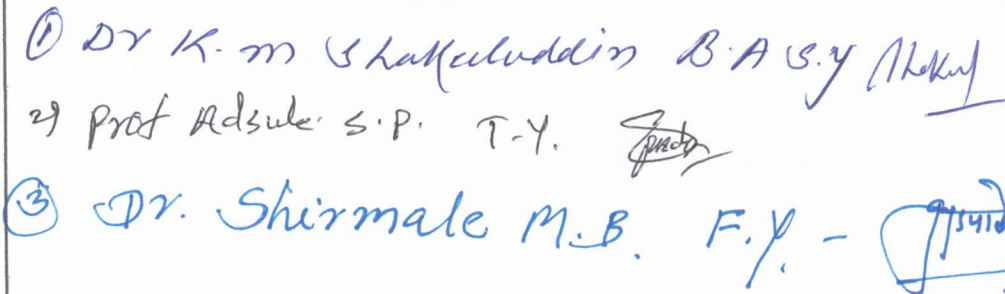 ① Dr K. m Shakeeluddin B.A S.y
2) Prof Adsule. S.P. T-Y.
③ Dr. Shirmale M.B. F.Y. -